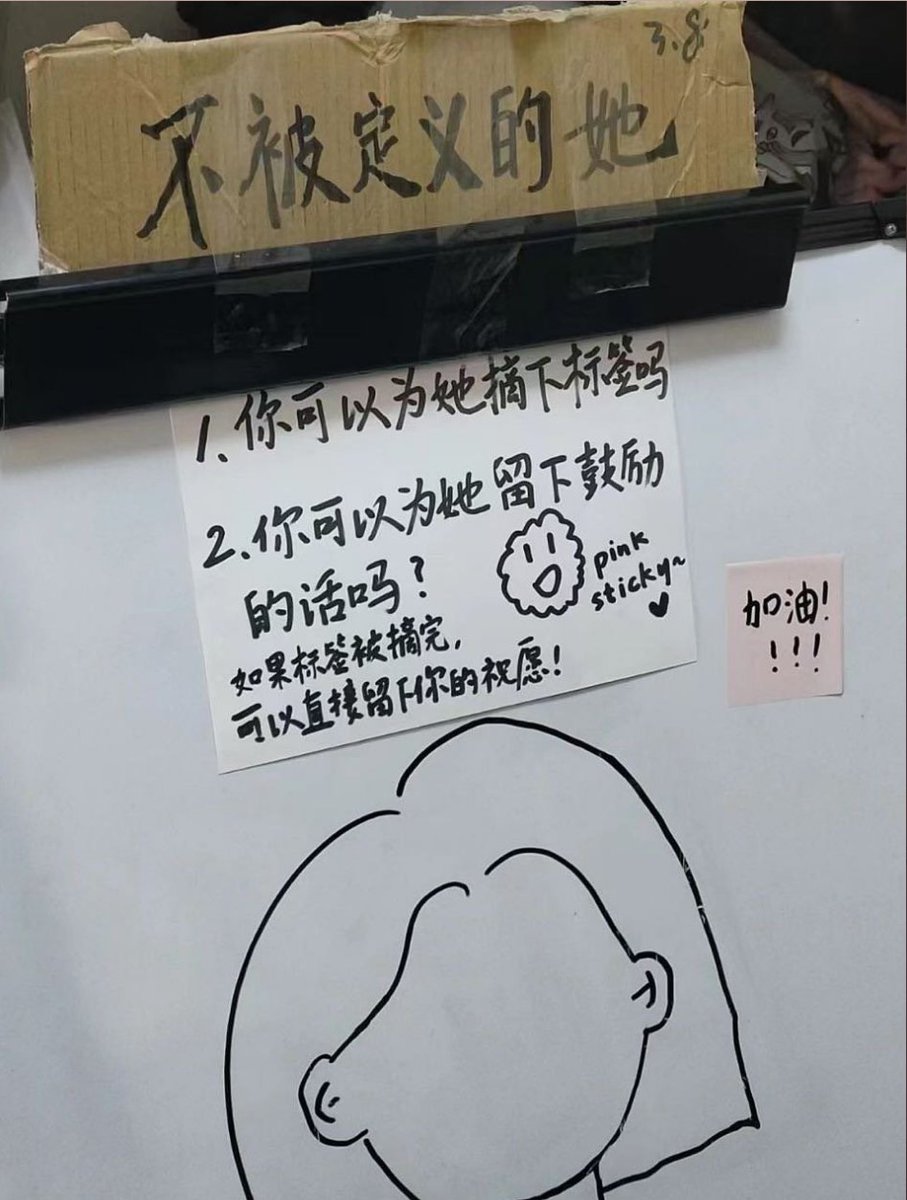 3.8
不被定义的她
1、你可以为她摘下标签吗
2、你可以为她留下鼓励
的话吗？
pink
sticky~
如果标签被摘完，
可以直接留下你的祝愿！
加油！
！！！